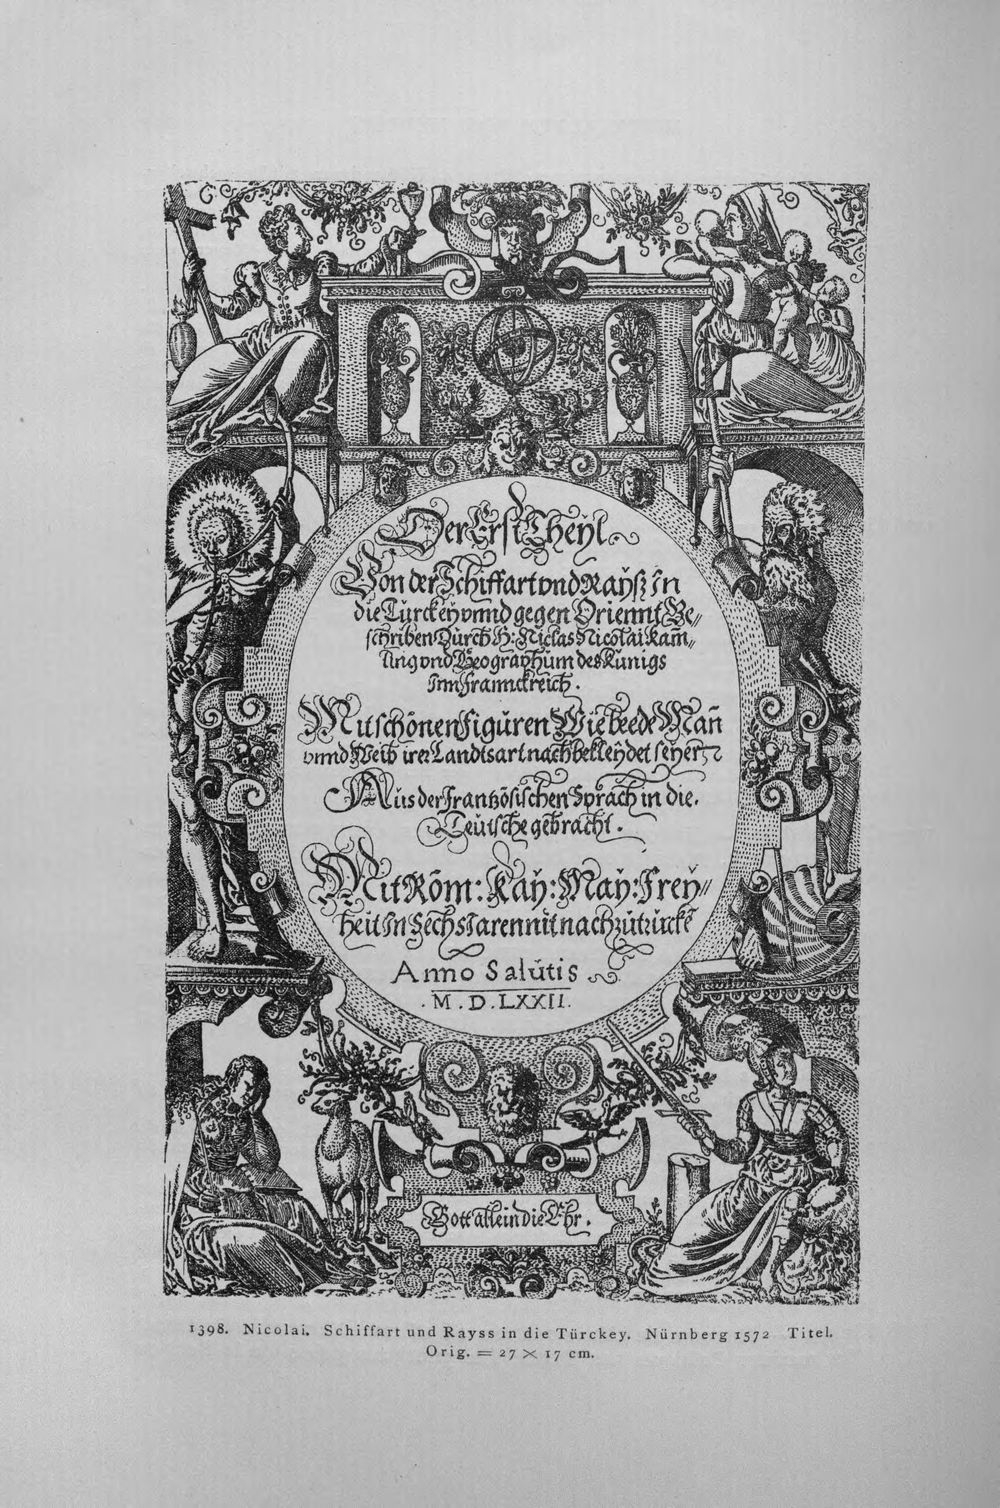 Der Erst Theyl
Von der Schiffart vnd Rayß In
die Türckey vnnd gegen Oriennt Be„
schriben Durch H: Niclas Nicolai Kam„
ling vnd Geographum des Kunigs
Inn Franncktreich.
Mit schönen Figuren Wie beede Mañ
vnnd Weib irer Landtsart nach bekleydet seyen
Aus der Frantzösischen Sprach in die.
Teutsche gebracht.
Mit Röm: Kay: May: Frey„
heit In Sechs Iaren nit nachzutrucke
Anno Salutis
.M.D.LXXII.
Gott allein die Ehr.
1398. Nicolai. Schiffart und Rayss in die Türckey. Nürnberg 1572 Titel.
Orig. = 27 × 17 cm.